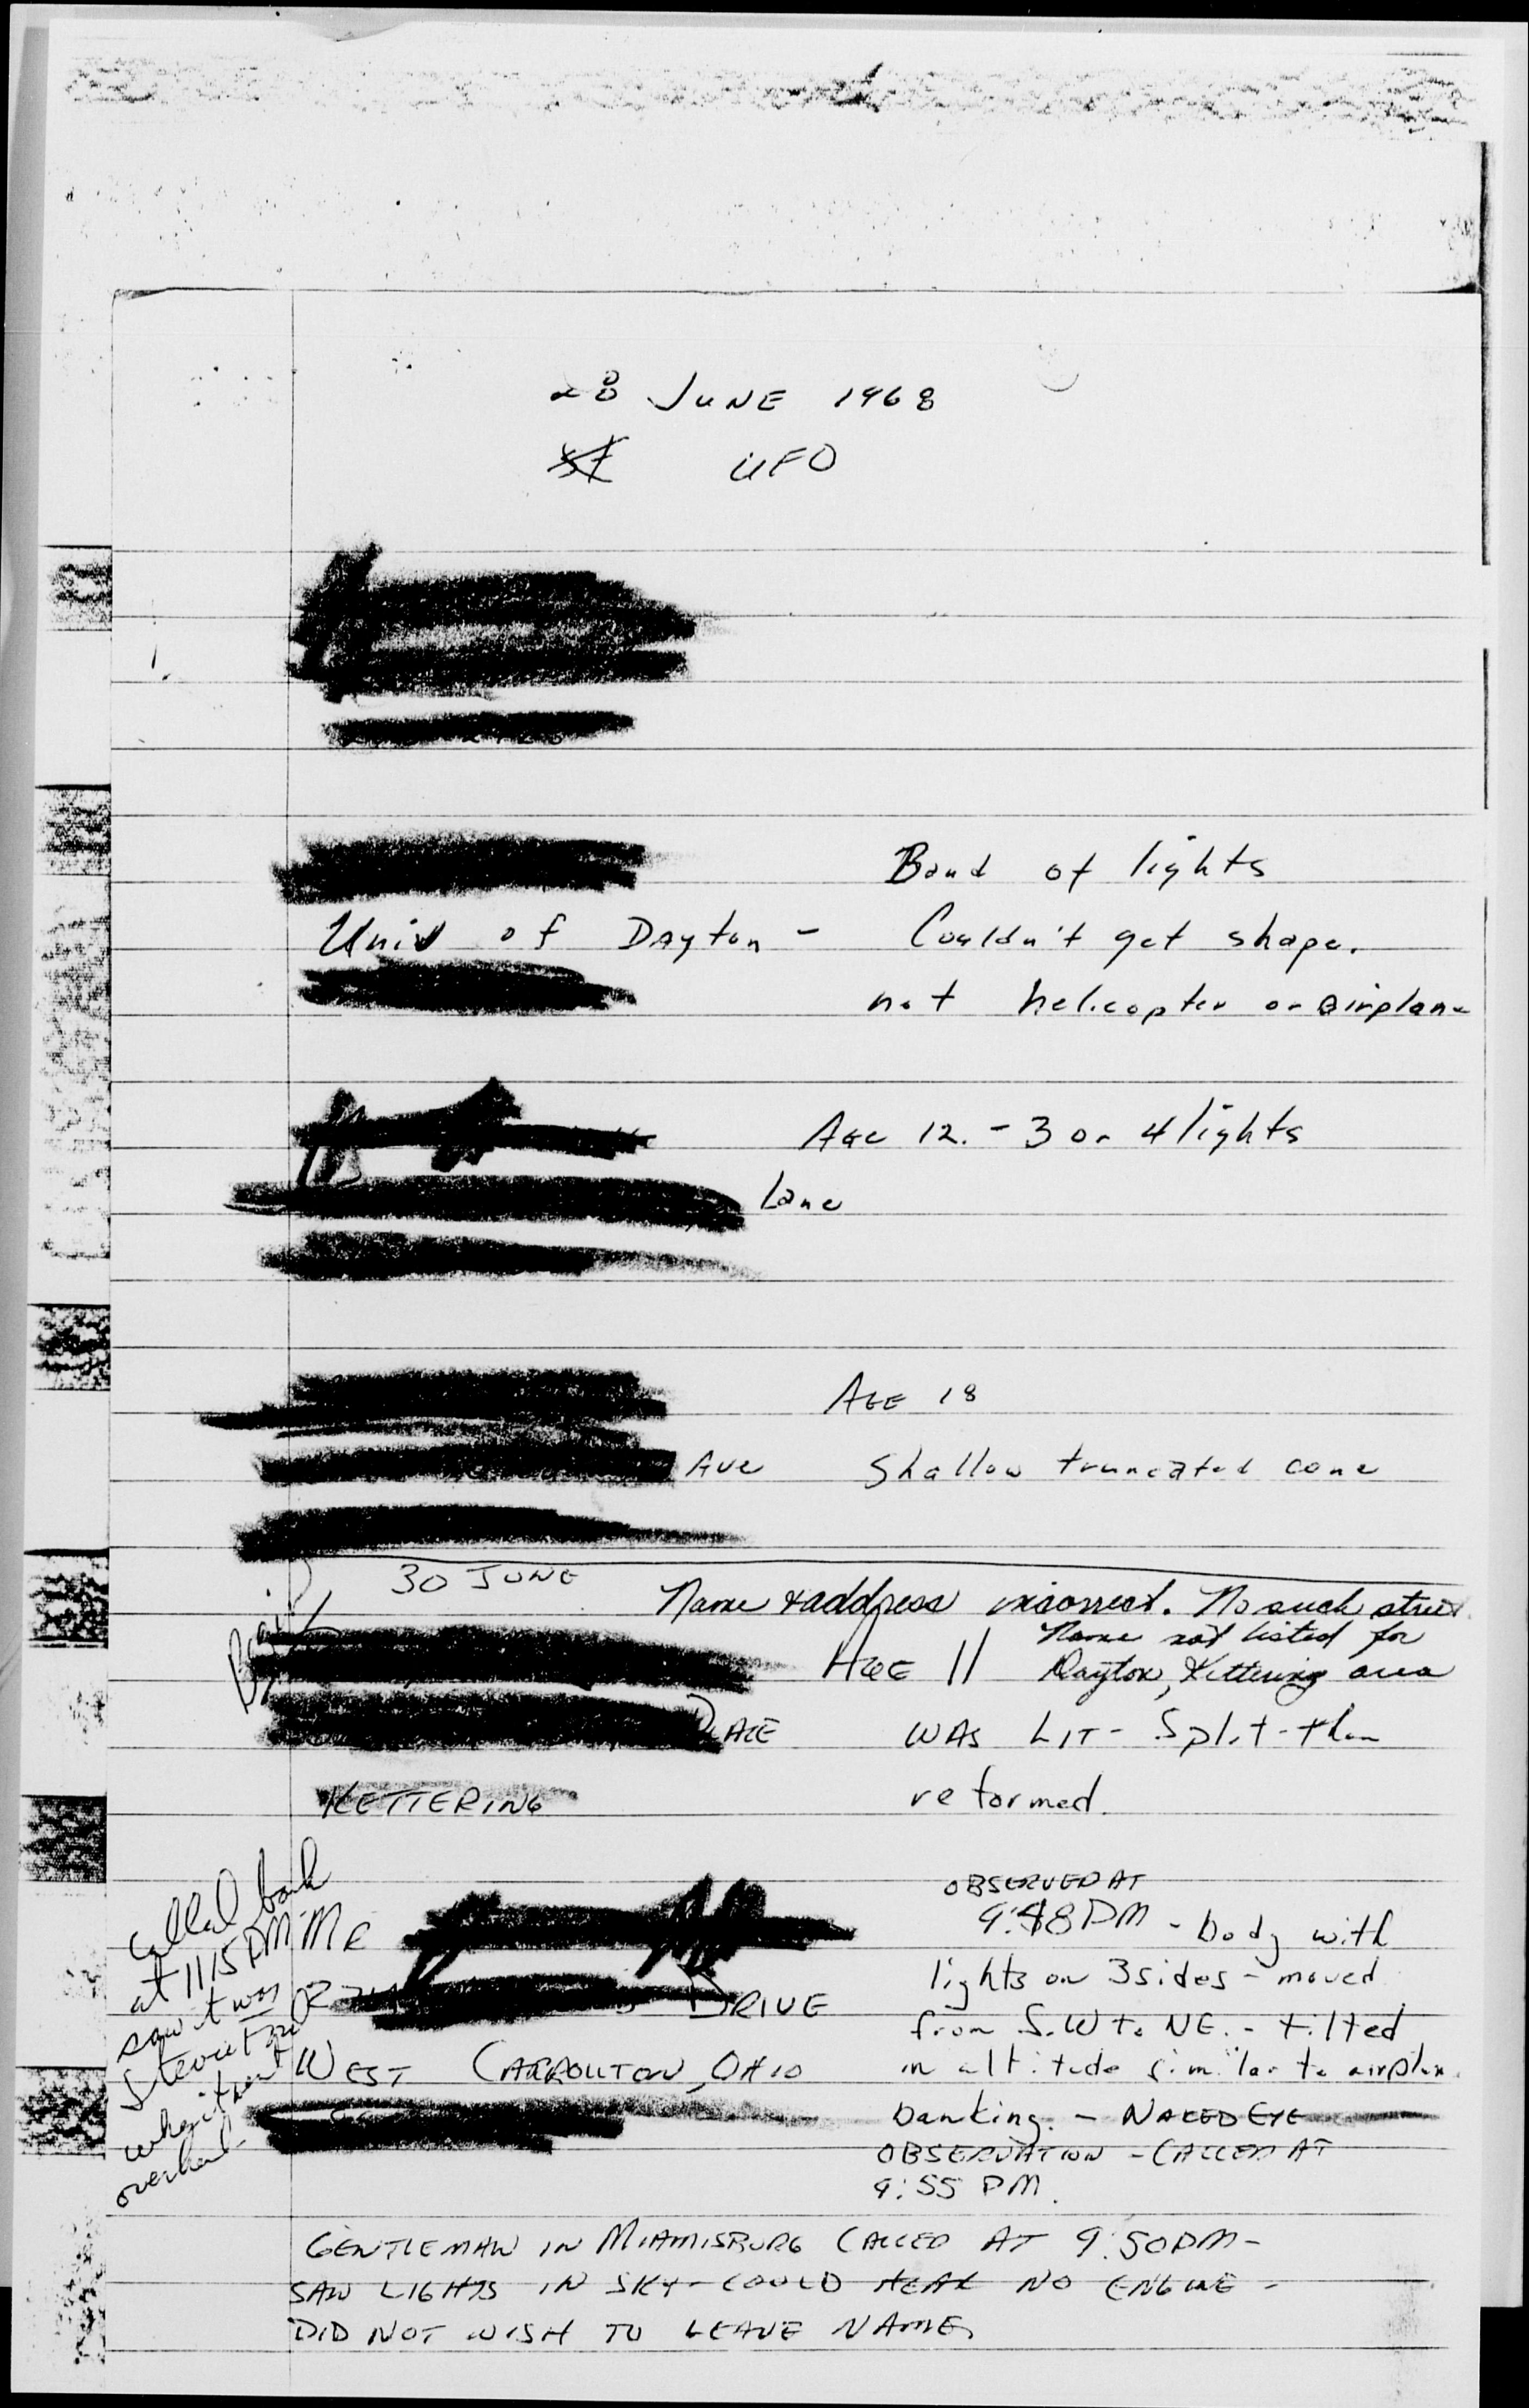 28 JUNE 1968
UFO
Band of lights
Univ of Dayton - Couldn't get shape.
not helicopter or airplane
AGE 12. - 3 or 4 lights
Lane
AGE 18
Ave Shallow truncated cone
30 JUNE
Name & address incorrect. No such street.
Name not listed for
AGE 11 Dayton, Kettering area
WAS LIT - Split - then
KETTERING reformed.
OBSERVED AT
MR 9:48 PM - body with
lights on 3 sides - moved
DRIVE
from S.W to NE. - tilted
WEST CARROLLTON, OHIO in altitude similar to airplane
banking. - NAKED EYE
OBSERVATION - CALLED AT
9:55 PM.
Called back
at 1115 PM
saw it was
when it went
overhead
GENTLEMAN IN MIAMISBURG CALLED AT 9:50 PM -
SAW LIGHTS IN SKY - COULD HEAR NO ENGINE -
DID NOT WISH TO LEAVE NAME